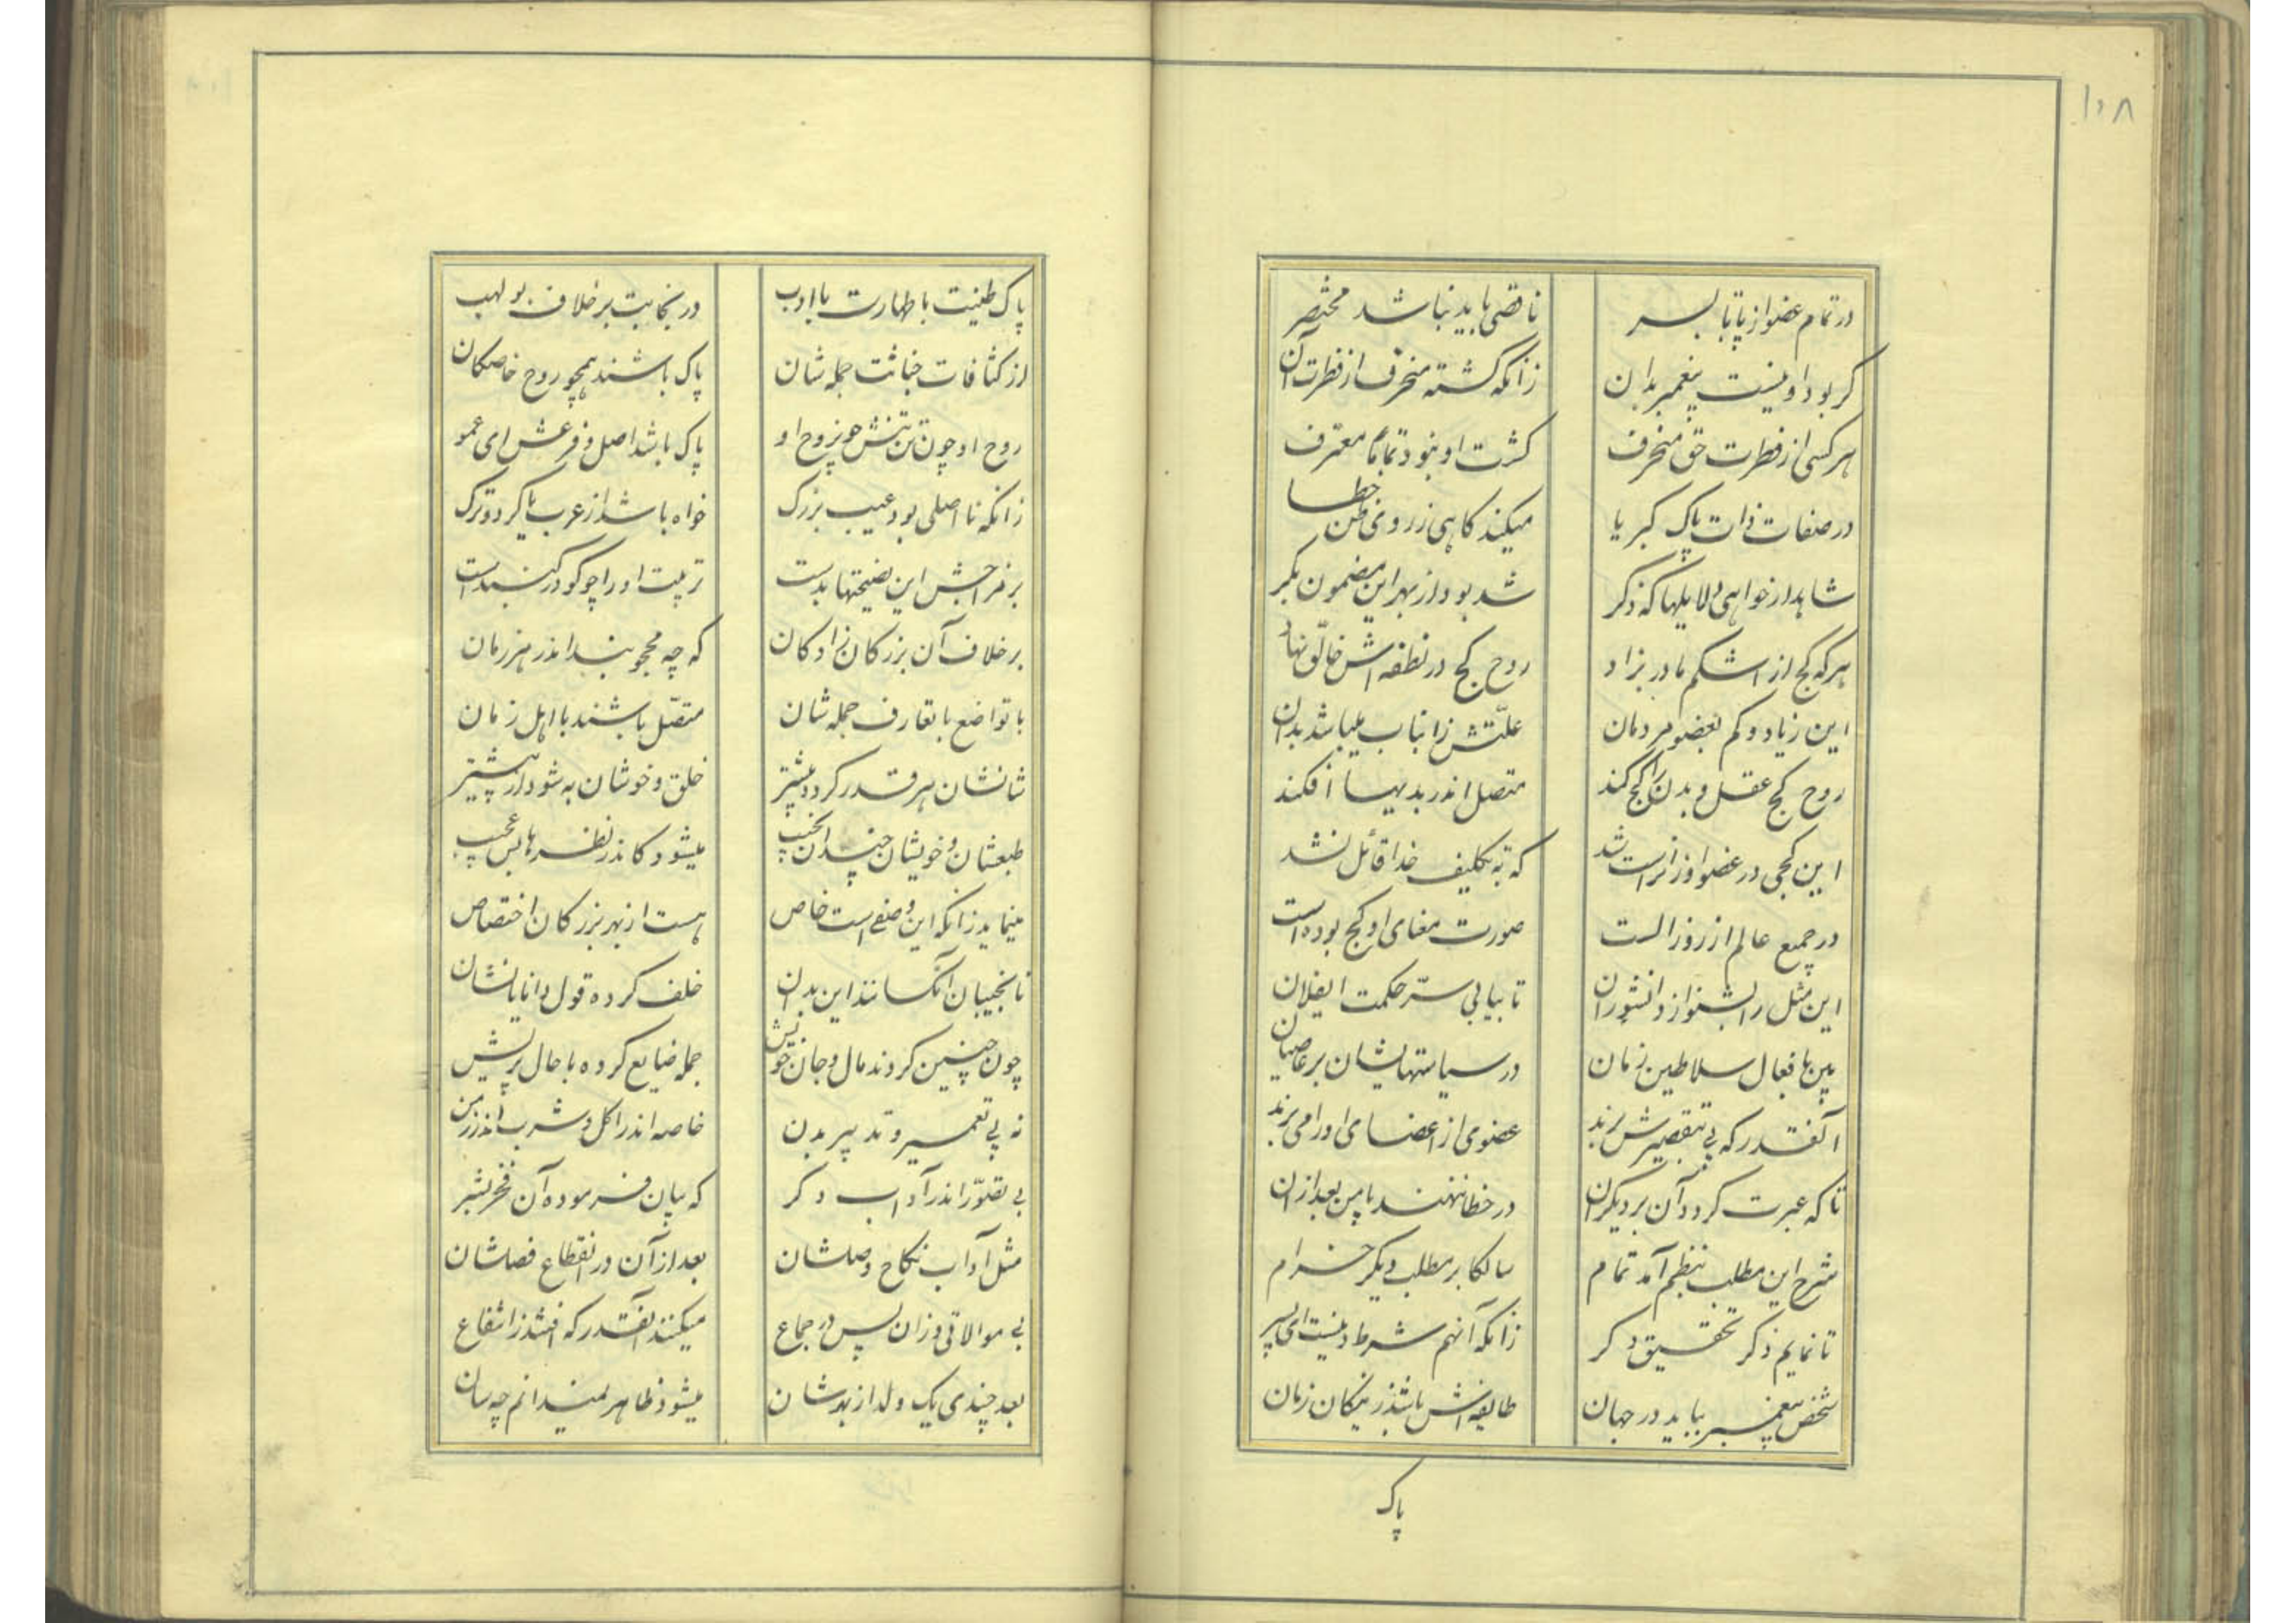 ۱۰۸
در تمام عضو از پا تا بسر
ناقصی باید نباشد مختصر
گر بود او نیست پیغمبر بدان
زانکه گشته منحرف از فطرت آن
هر کسی از فطرت حق منحرف
گشت او نبود تماما معترف
در صفات ذات پاک کبریا
میکند گاهی ز روی ظن خطا
شاهد ار خواهی دلایلها که ذکر
شد بود از بهر این مضمون بکر
هر که کج از اشکم مادر بزاد
روح کج در نطفه اش خالق نهاد
این زیاد و کم بعضو مردمان
علتش زانباب میباشد بدان
روح کج عقل و بدن را کج کند
متصل اندر بدیها افکند
این کجی در عضو او زانراست شد
که به تکلیف خدا قائل نشد
در جمیع عالم از روز الست
صورت معنای او کج بوده است
این مثل را بشنو از دانشوران
تا بیابی سر حکمت ایفلان
بین بافعال سلاطین زمان
در سیاستهایشان بر عاصیان
آنقدر که پی بتقصیرش برند
عضوی از اعضای او را می برند
تا که عبرت گردد آن بر دیگران
در خطا ننهند پا من بعد از ان
شرح این مطلب بنظم آمد تمام
سالکا بر مطلب دیگر خرام
تا نمایم ذکر تحقیق دگر
زانکه آنهم شرط دینست ای پسر
شخص پیغمبر بباید در جهان
طایفه اش باشد ز نیکان زمان
پاک
پاک طینت با طهارت با ادب
در نجابت بر خلاف بو لهب
از کثافات خباثت جمله شان
پاک باشند همچو روح خاصکان
روح او چون تن تنش چو نروح او
پاک باشد اصل و فرعش ای عمو
زانکه نا اصلی بود عیب بزرگ
خواه باشد از عرب یا کرد و ترک
بر مزاجش این نصیحتها بدست
تربیت او را چو گو در گنبد است
بر خلاف آن بزرگان زادگان
که چه محجوبند اندر هر زمان
با تواضع با تعارف جمله شان
متصل باشند با اهل زمان
شانشان هر قدر گردد بیشتر
خلق و خوشان به شود از پیشتر
طبعشان و خویشان چندان نجیب
میشود کاندر نظرها بس عجیب
مینماید زانکه این وصفی است خاص
هست از بهر بزرگان اختصاص
نانجیبان آنکسانند این بدان
خلف کرده قول دانایانشان
چون چنین کردند مال و جان خویش
جمله ضایع کرده با حال پریش
نه پی تعمیر و تدبیر بدن
خاصه اندر اکل و شرب اندر زمن
بی تصور اندر آداب دگر
که بیان فرموده آن فخر بشر
مثل آداب نکاح وصلشان
بعد از آن در انقطاع فصلشان
بی موالاتی وزان پس در جماع
میکنند آنقدر که افتند ز انتفاع
بعد چندی یک ولد از بهر شان
میشود ظاهر نمیدانم چه سان